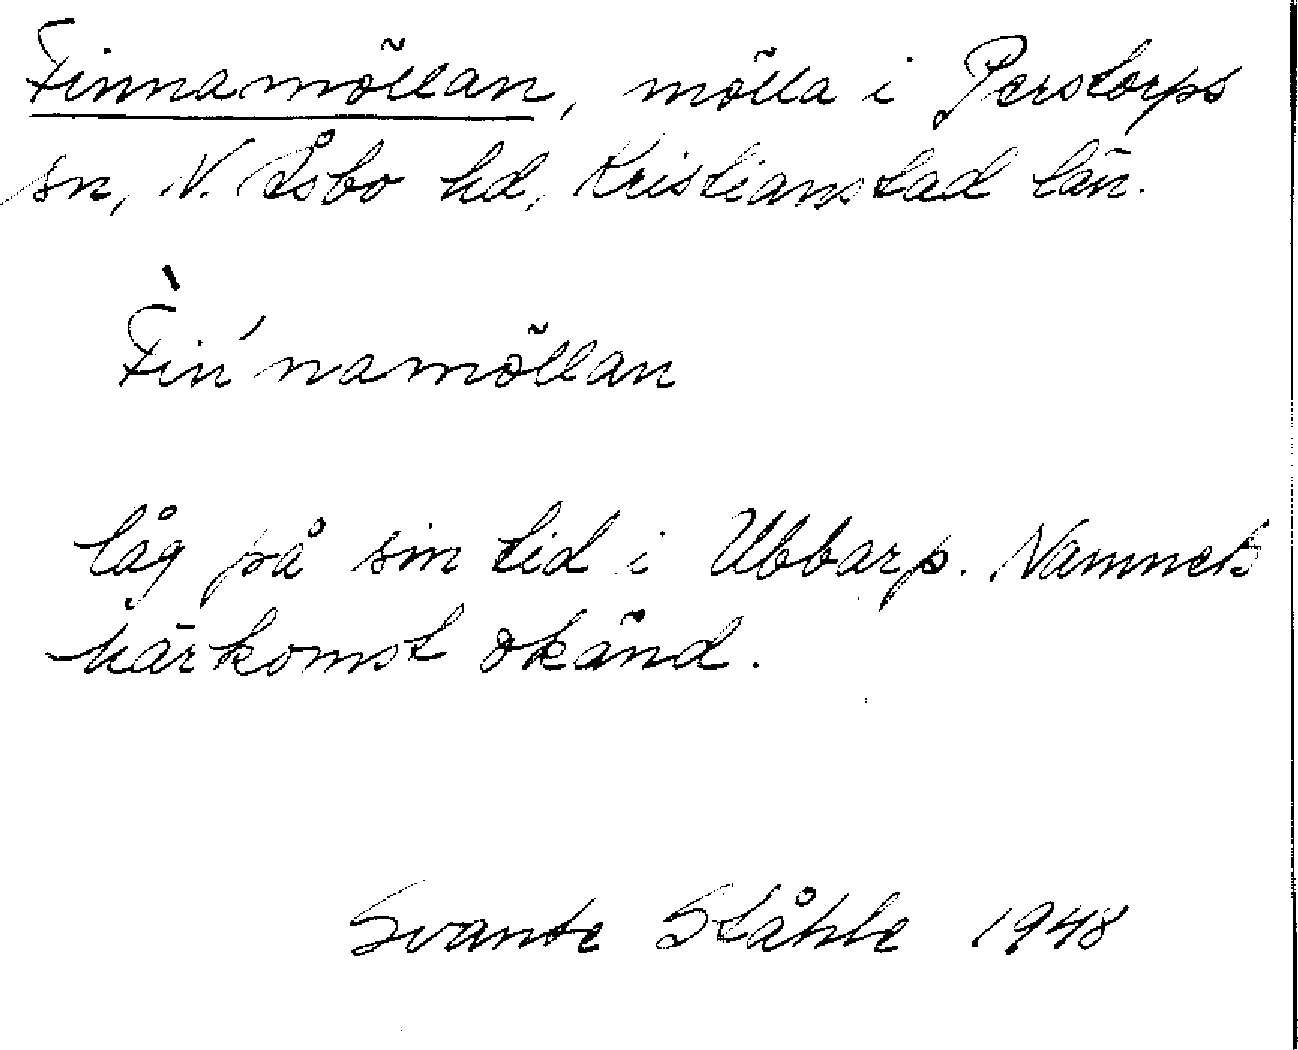 Finnamöllan, mölla i Perstorps
sn, N. Åsbo hd, Kristianstad län.
Fin´namöllan
låg på sin tid i Ubbarp. Namnets
härkomst okänd.
Svante Ståhle 1948